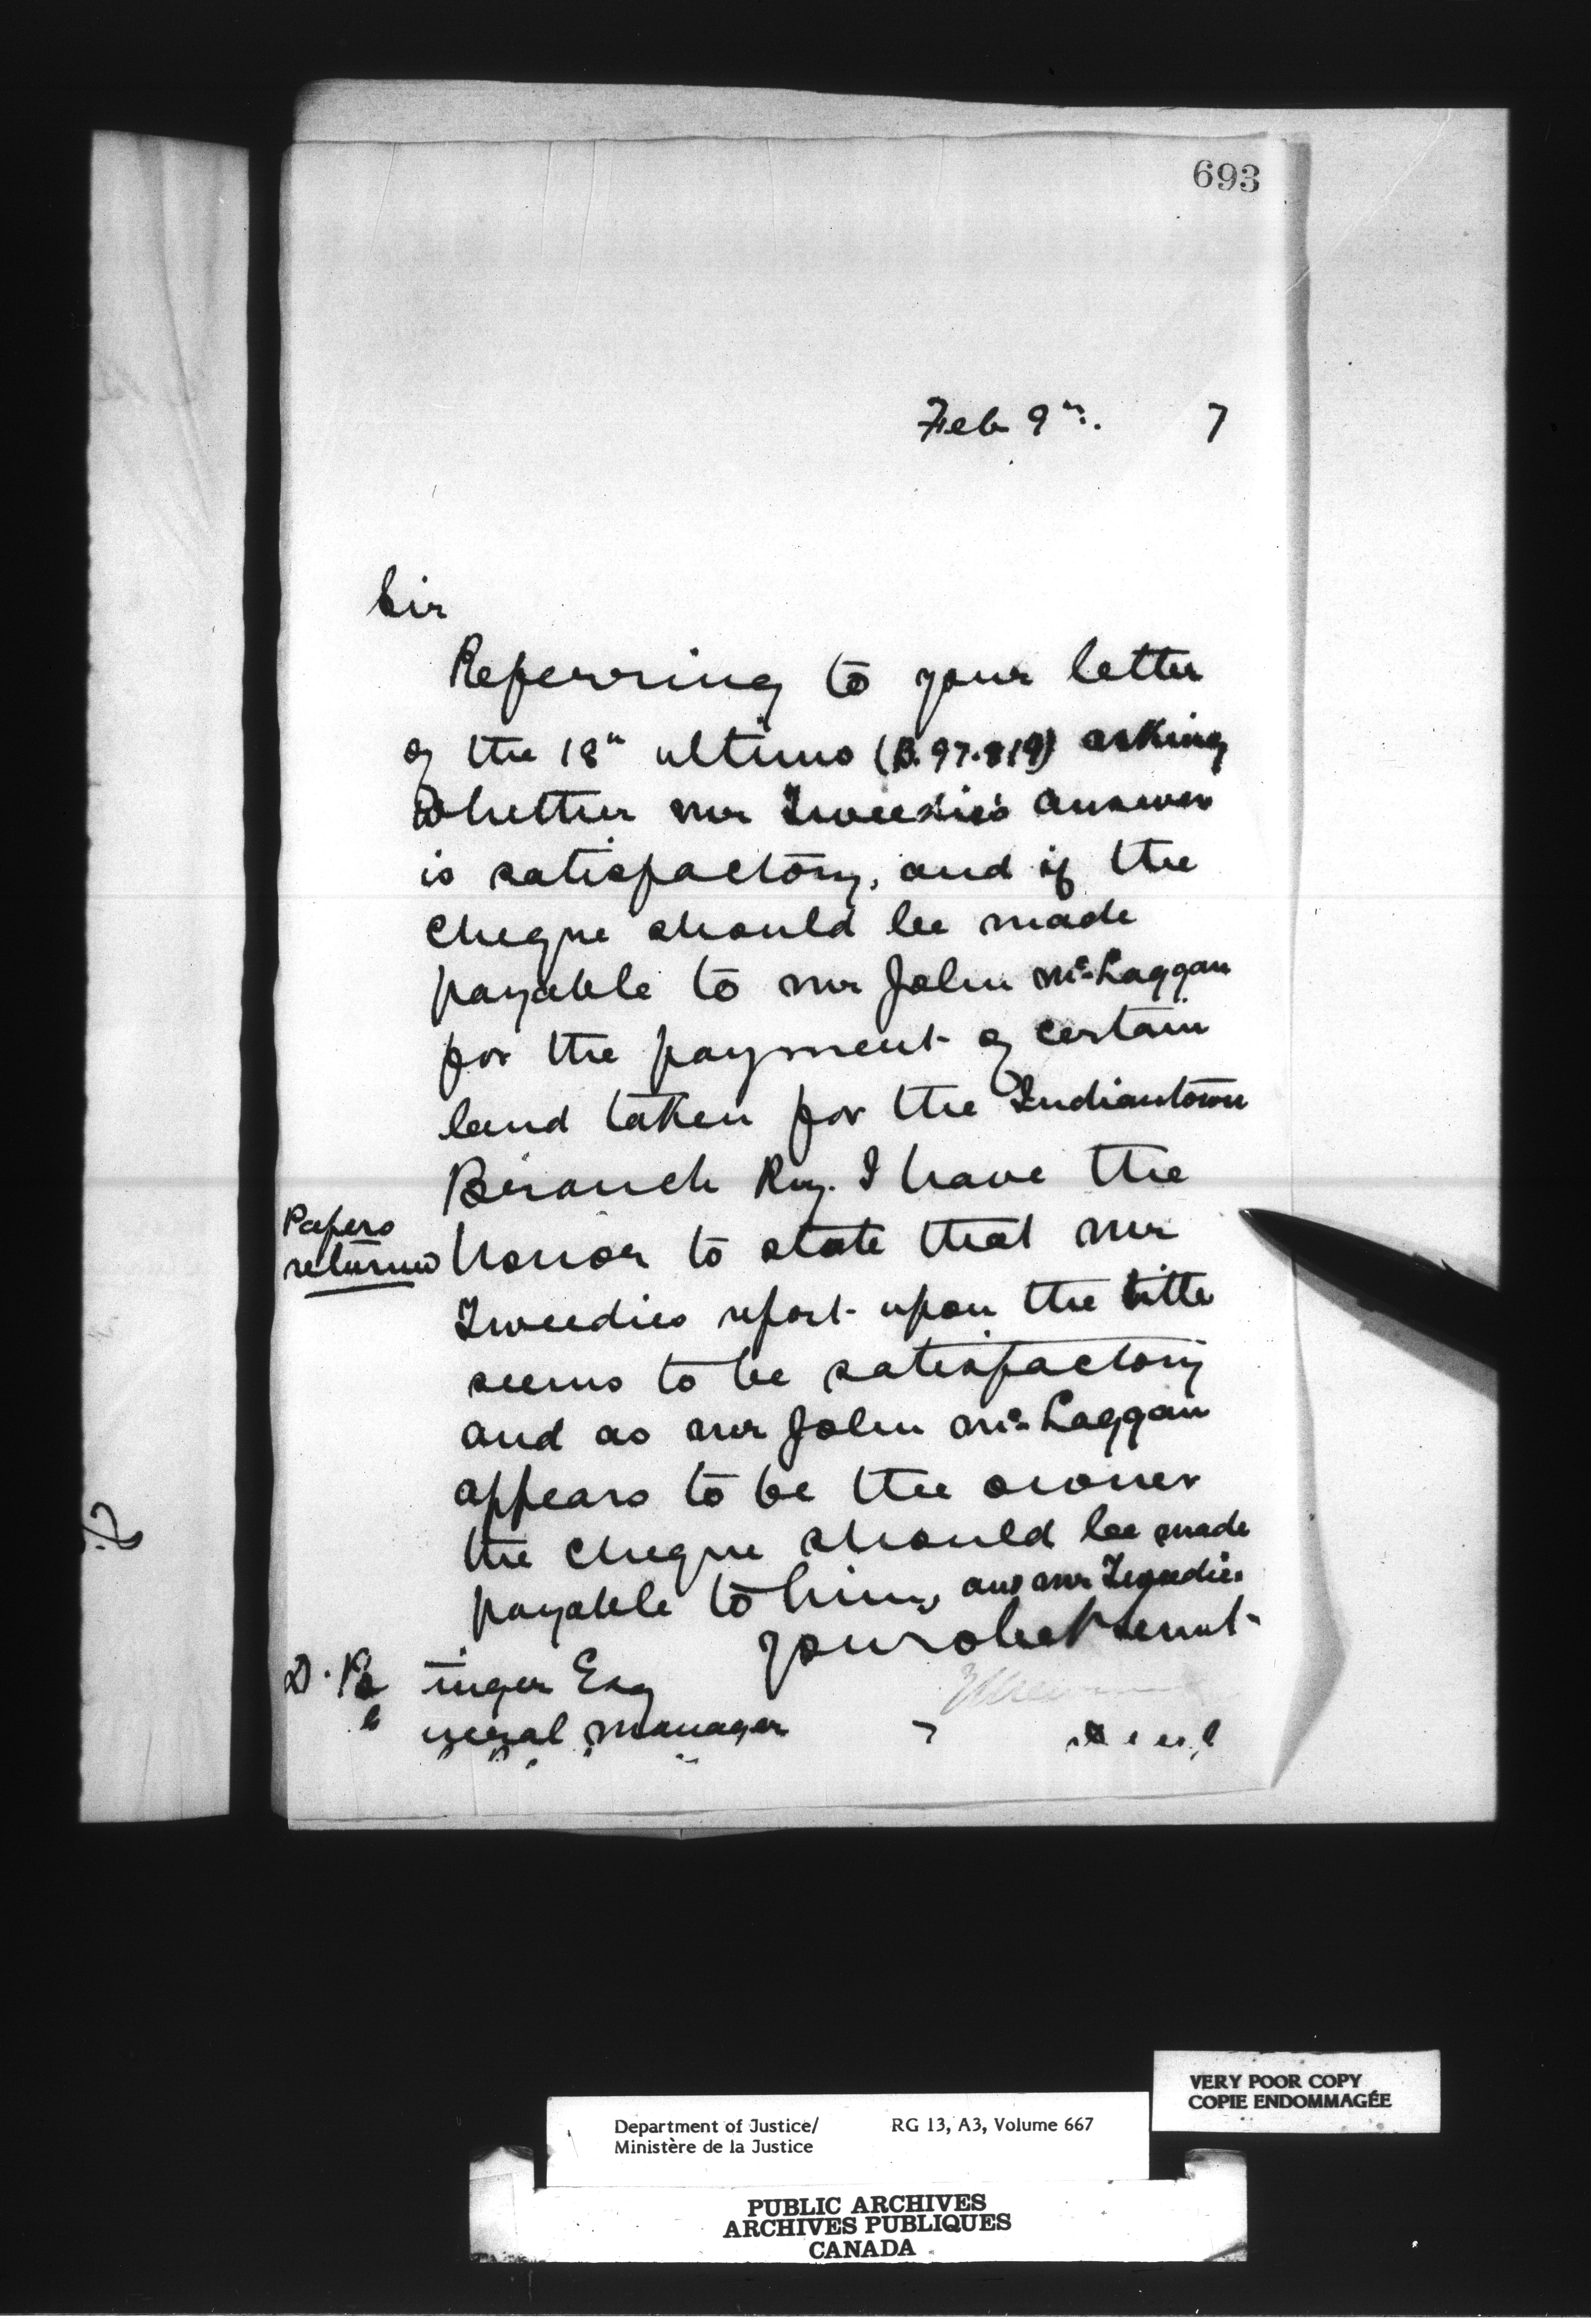 693
Feb 9th. 7
Sir
Referring to your letter
of the 18th ultimo (B.97.819) asking
whether Mr Tweedie's answer
is satisfactory, and if the
cheque should be made
payable to Mr John McLaggan
for the payment of certain
land taken for the Indiantown
Branch Ry. I have the
Papers
returned
honor to state that Mr
Tweedies report upon the title
seems to be satisfactory
and as Mr John McLaggan
appears to be the owner
the cheque should be made
payable to him, and Mr Tweedie
Your obedt Servt
D. Po tinger Esq
neral Manager
VERY POOR COPY
COPIE ENDOMMAGÉE
Department of Justice/ RG 13, A3, Volume 667
Ministère de la Justice
PUBLIC ARCHIVES
ARCHIVES PUBLIQUES
CANADA